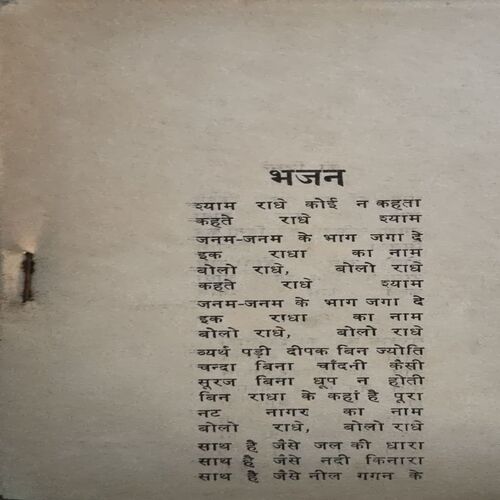 भजन
श्याम राधे कोई न कहता
कहते राधे श्याम
जनम-जनम के भाग जगा दे
इक राधा का नाम
बोलो राधे, बोलो राधे
कहते राधे श्याम
जनम-जनम के भाग जगा दे
इक राधा का नाम
बोलो राधे, बोलो राधे
व्यर्थ पड़ी दीपक बिन ज्योति
चन्दा बिना चाँदनी कैसी
सूरज बिना धूप न होती
बिन राधा के कहां है पूरा
नट नागर का नाम
बोलो राधे, बोलो राधे
साथ है जैसे जल की धारा
साथ है जैसे नदी किनारा
साथ है जैसे नील गगन के